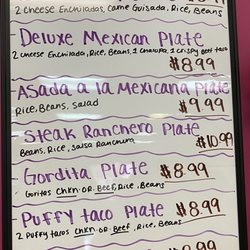 2 cheese Enchiladas, Carne Guisada, Rice, Beans
Deluxe Mexican Plate
2 cheese Enchilada, Rice, Beans, 1 chalupa, 1 crispy beef taco
$8.99
Asada a la Mexicana Plate
Rice, Beans, Salad
$9.99
Steak Ranchero Plate
Beans, Rice, Salsa Ranchera
$10.99
Gordita Plate $8.99
Gorditas Chkn OR Beef, Rice, Beans
Puffy Taco Plate $8.99
2 Puffy tacos Chkn OR Beef, Rice, Beans